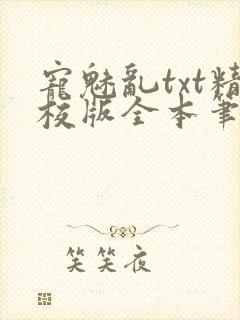 寵魅亂txt精
校版全本筆
笑笑夜